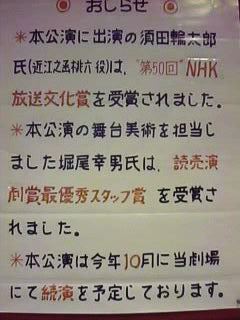 おしらせ
*本公演に出演の須田輪太郎
氏(近江之丞桃六役)は、"第50回"NHK
放送文化賞を受賞されました。
*本公演の舞台美術を担当し
ました堀尾幸男氏は、読売演
劇賞最優秀スタッフ賞 を受賞さ
れました。
*本公演は今年10月に当劇場
にて続演を予定しております。